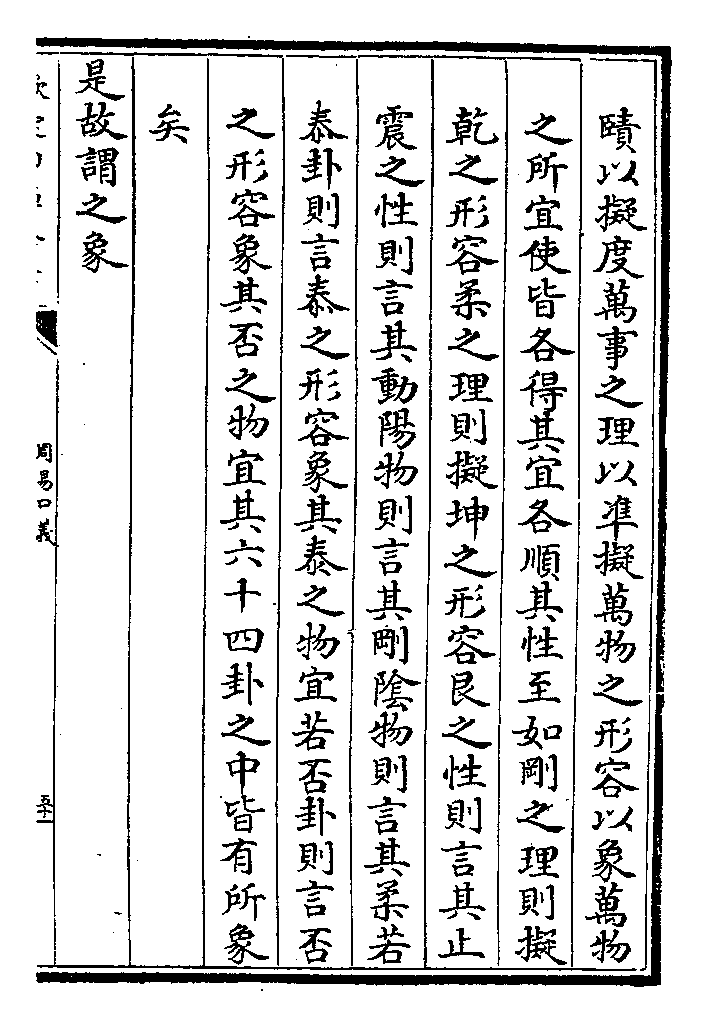 賾以擬度萬事之理以准擬萬物之形容以象萬物
之所宜使皆各得其宜各順其性至如剛之理則擬
乾之形容柔之理則擬坤之形容艮之性則言其止
震之性則言其動陽物則言其剛陰物則言其柔若
泰卦則言泰之形容象其泰之物宜若否卦則言否
之形容象其否之物宜其六十四卦之中皆有所象
矣
是故謂之象
周易口義